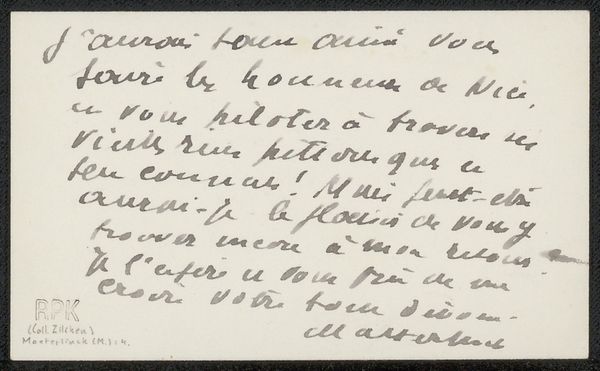 J'aurais tant aimé vous
faire les honneurs de Nice,
et vous piloter à travers ses
vieilles rues pittoresques et
peu connues! Mais peut-être
aurai-je le plaisir de vous y
trouver encore à mon retour
Je l'espère et vous prie de me
croire votre tout dévoué
Maeterlinck
RPK
(Coll. Zilcken)
Maeterlinck (M.): 4.